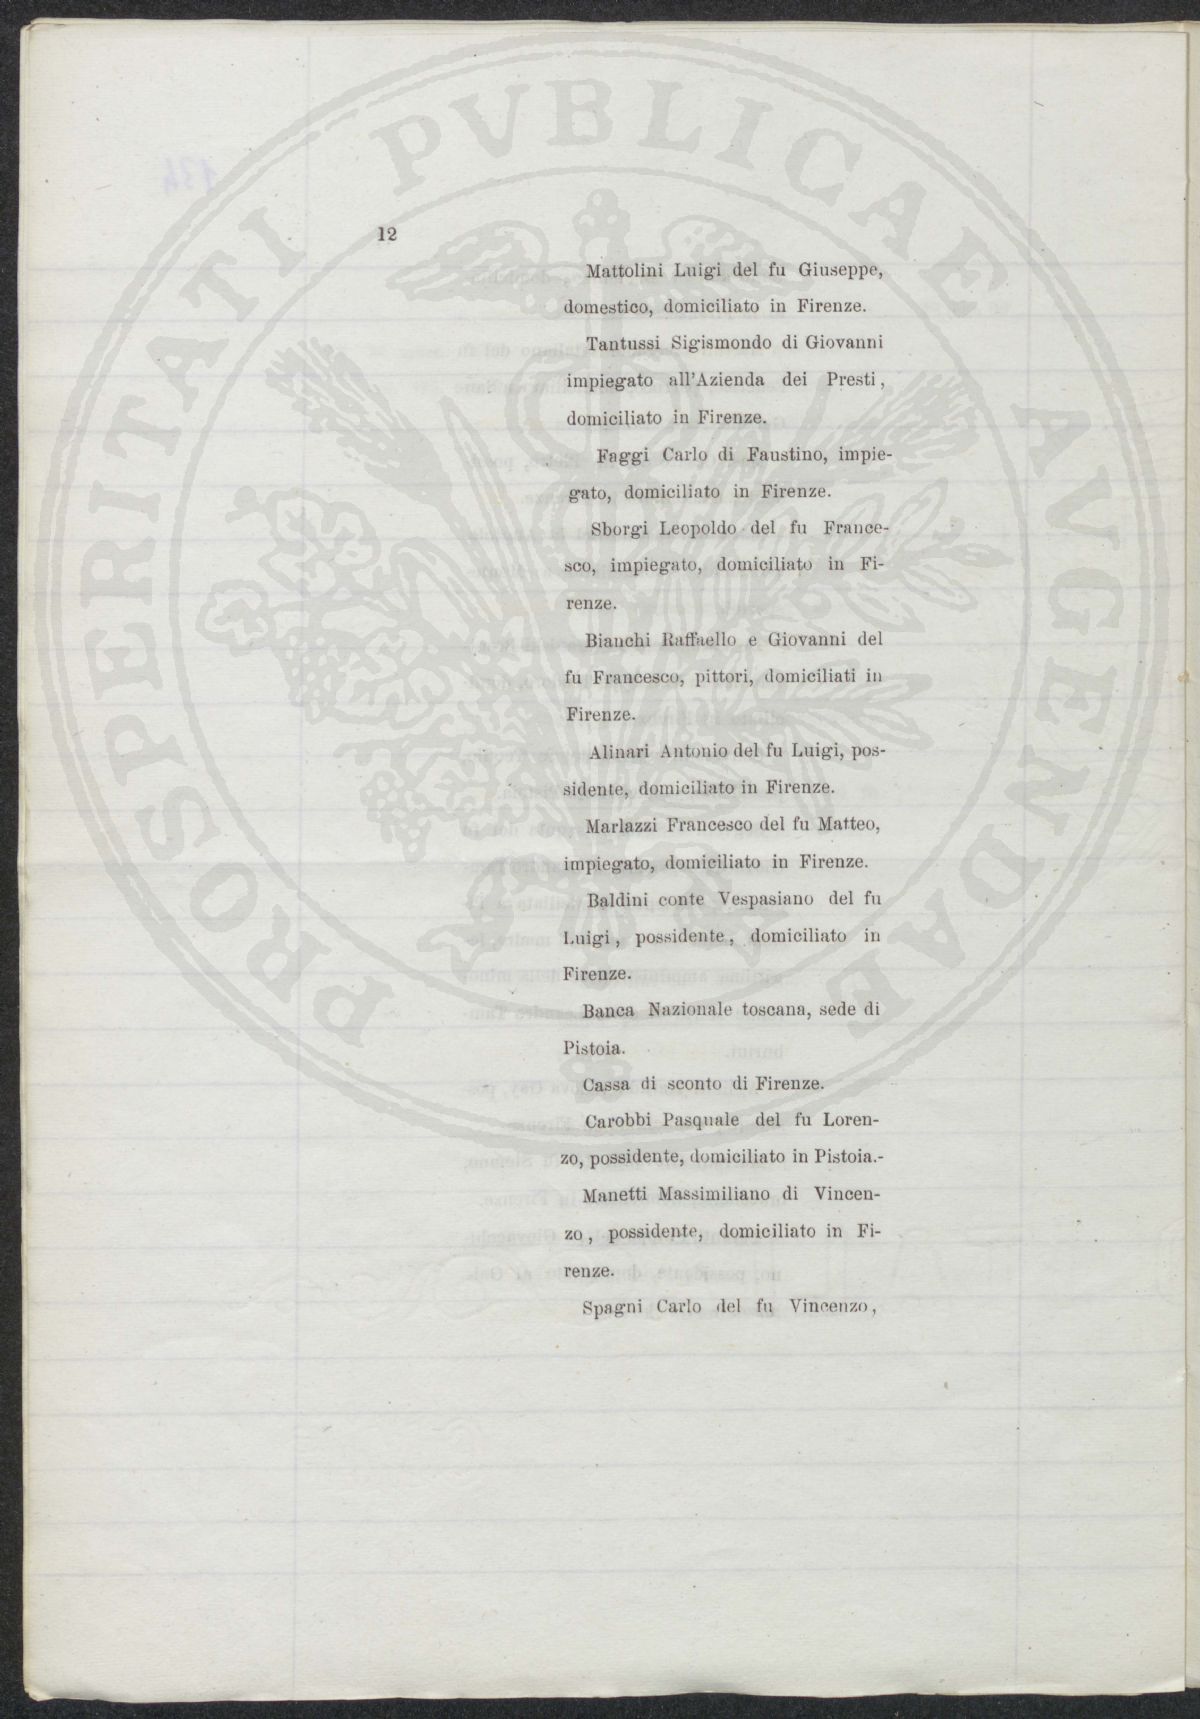 12
Mattolini Luigi del fu Giuseppe,
domestico, domiciliato in Firenze.
Tantussi Sigismondo di Giovanni
impiegato all'Azienda dei Presti,
domiciliato in Firenze.
Faggi Carlo di Faustino, impie-
gato, domiciliato in Firenze.
Sborgi Leopoldo del fu France-
sco, impiegato, domiciliato in Fi-
renze.
Bianchi Raffaello e Giovanni del
fu Francesco, pittori, domiciliati in
Firenze.
Alinari Antonio del fu Luigi, pos-
sidente, domiciliato in Firenze.
Marlazzi Francesco del fu Matteo,
impiegato, domiciliato in Firenze.
Baldini conte Vespasiano del fu
Luigi, possidente, domiciliato in
Firenze.
Banca Nazionale toscana, sede di
Pistoia.
Cassa di sconto di Firenze.
Carobbi Pasquale del fu Loren-
zo, possidente, domiciliato in Pistoia.-
Manetti Massimiliano di Vincen-
zo, possidente, domiciliato in Fi-
renze.
Spagni Carlo del fu Vincenzo,
PROSPERITATI PVBLICAE AVGENDAE